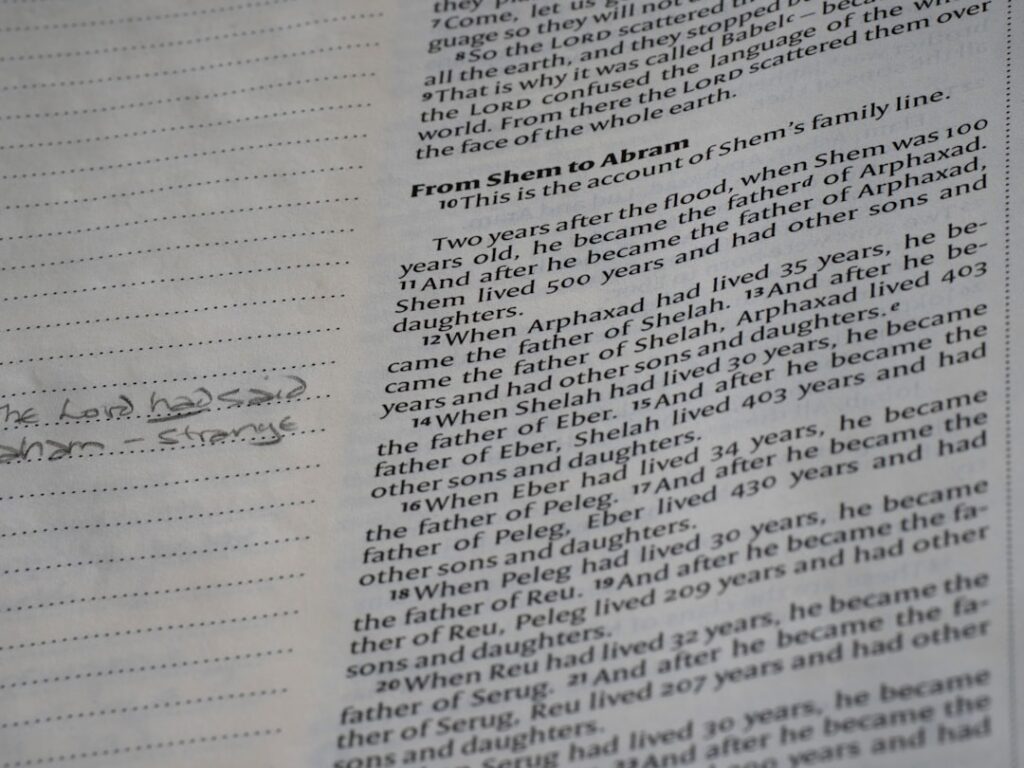 they pla
7Come, let us g
guage so they will not
8So the LORD scattered th
all the earth, and they stopped b
9That is why it was called Babelc – beca
the LORD confused the language of the wh
world. From there the LORD scattered them over
the face of the whole earth.
From Shem to Abram
10This is the account of Shem's family line.
Two years after the flood, when Shem was 100
years old, he became the fatherd of Arphaxad.
11And after he became the father of Arphaxad,
Shem lived 500 years and had other sons and
daughters.
12When Arphaxad had lived 35 years, he be-
came the father of Shelah. 13And after he be-
came the father of Shelah, Arphaxad lived 403
years and had other sons and daughters.e
14When Shelah had lived 30 years, he became
the father of Eber. 15And after he became the
father of Eber, Shelah lived 403 years and had
other sons and daughters.
16When Eber had lived 34 years, he became
the father of Peleg. 17And after he became the
father of Peleg, Eber lived 430 years and had
other sons and daughters.
18When Peleg had lived 30 years, he became
the father of Reu. 19And after he became the fa-
ther of Reu, Peleg lived 209 years and had other
sons and daughters.
20When Reu had lived 32 years, he became the
father of Serug. 21And after he became the fa-
ther of Serug, Reu lived 207 years and had other
sons and daughters.
Serug had lived 30 years, he became
And after he became the
years and had
The Lord had said
aham – strange